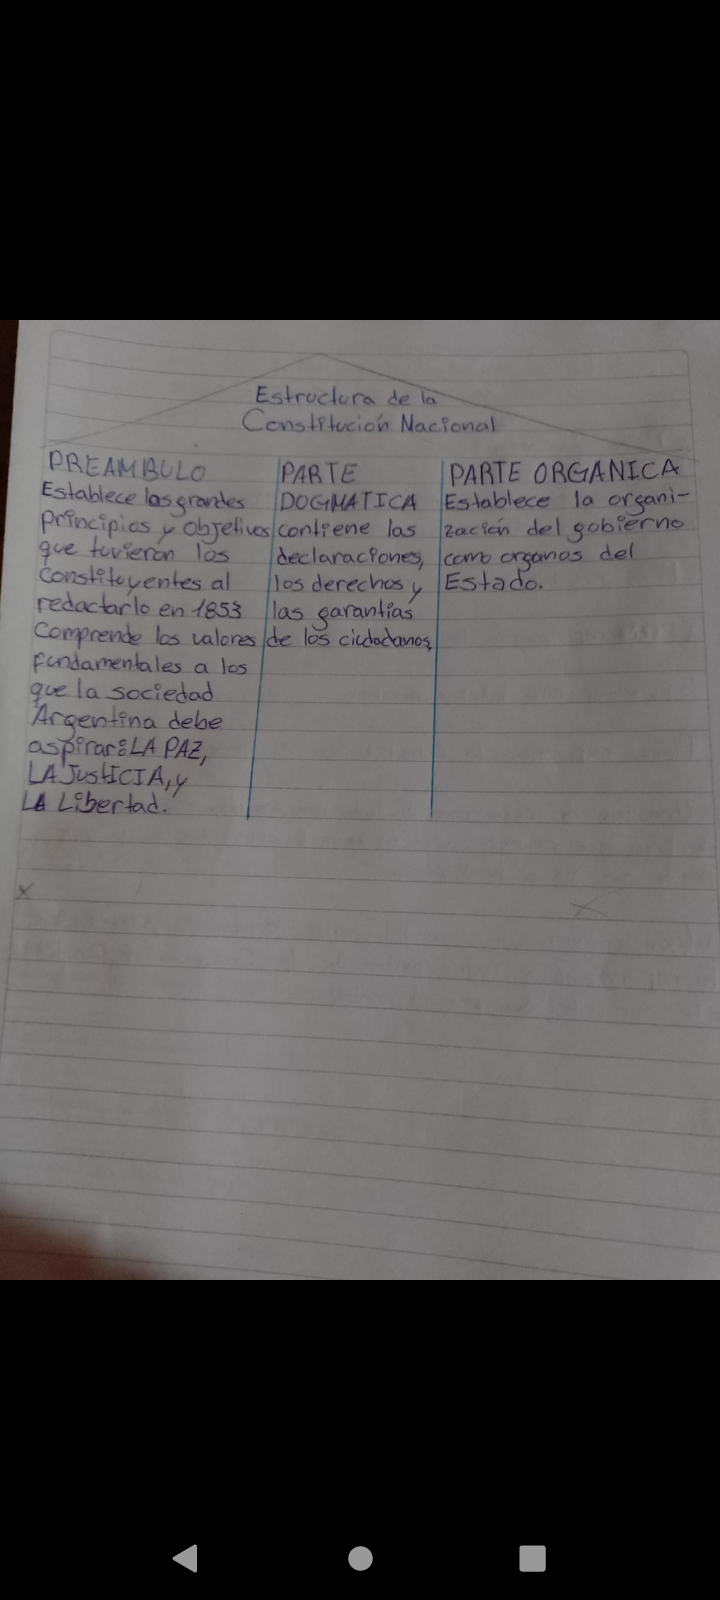 Estructura de la
Constitución Nacional
PREAMBULO
Establece los grandes
principios y objetivos
que tuvieron los
constituyentes al
redactarlo en 1853
Comprende los valores
fundamentales a los
que la sociedad
Argentina debe
aspirar: LA PAZ,
LA JustICIA, y
LA Libertad.
PARTE
DOGMATICA
contiene las
declaraciones,
los derechos y
las garantías
de los ciudadanos.
PARTE ORGANICA
Establece la organi-
zación del gobierno
como organos del
Estado.